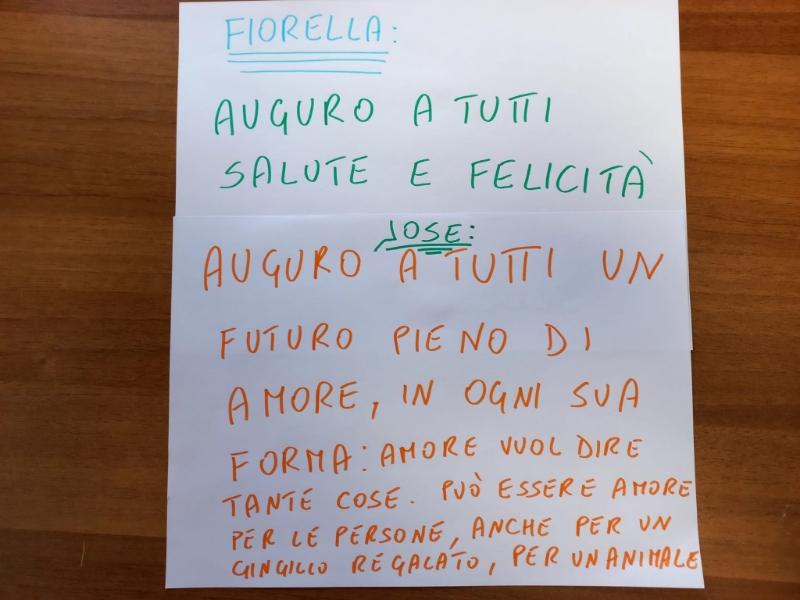 FIORELLA:
AUGURO A TUTTI
SALUTE E FELICITÀ
JOSE:
AUGURO A TUTTI UN
FUTURO PIENO DI
AMORE, IN OGNI SUA
FORMA: AMORE VUOL DIRE
TANTE COSE. PUÒ ESSERE AMORE
PER LE PERSONE, ANCHE PER UN
GINGILLO REGALATO, PER UN ANIMALE